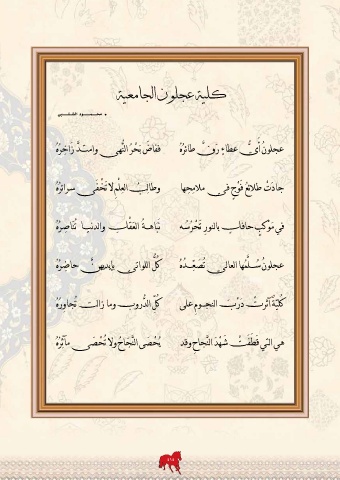 كلية عجلون الجامعية
عجلونُ أيُّ عطاءٍ رفَّ طائرُهُ ففاضَ بَحْرُ النُّهى وامتدَّ زاخِرُهُ
جادَتْ طلائعُ فَوْجٍ في ملامحِها وطالبُ العلْمِ لا تَخْفَى سرائرُهُ
في مَوْكبٍ حافلٍ بالنورِ تَحْرُسُه نَباهةُ العقْلِ والدنيا تُناصِرُهُ
عجلونُ سُلَّمُها العالي تُصَعِّدُهُ كُلُّ اللواتي حاضِرُهُ
كُلّيّةٌ آثرتْ دربَ النجومِ على كلِّ الدُّروبِ وما زالت تُجاورُهُ
هي التي قطَفَتْ شَهْدَ النَّجاحِ وقد يُحْصى النَّجاحُ ولا تُحْصى مآثرُهُ